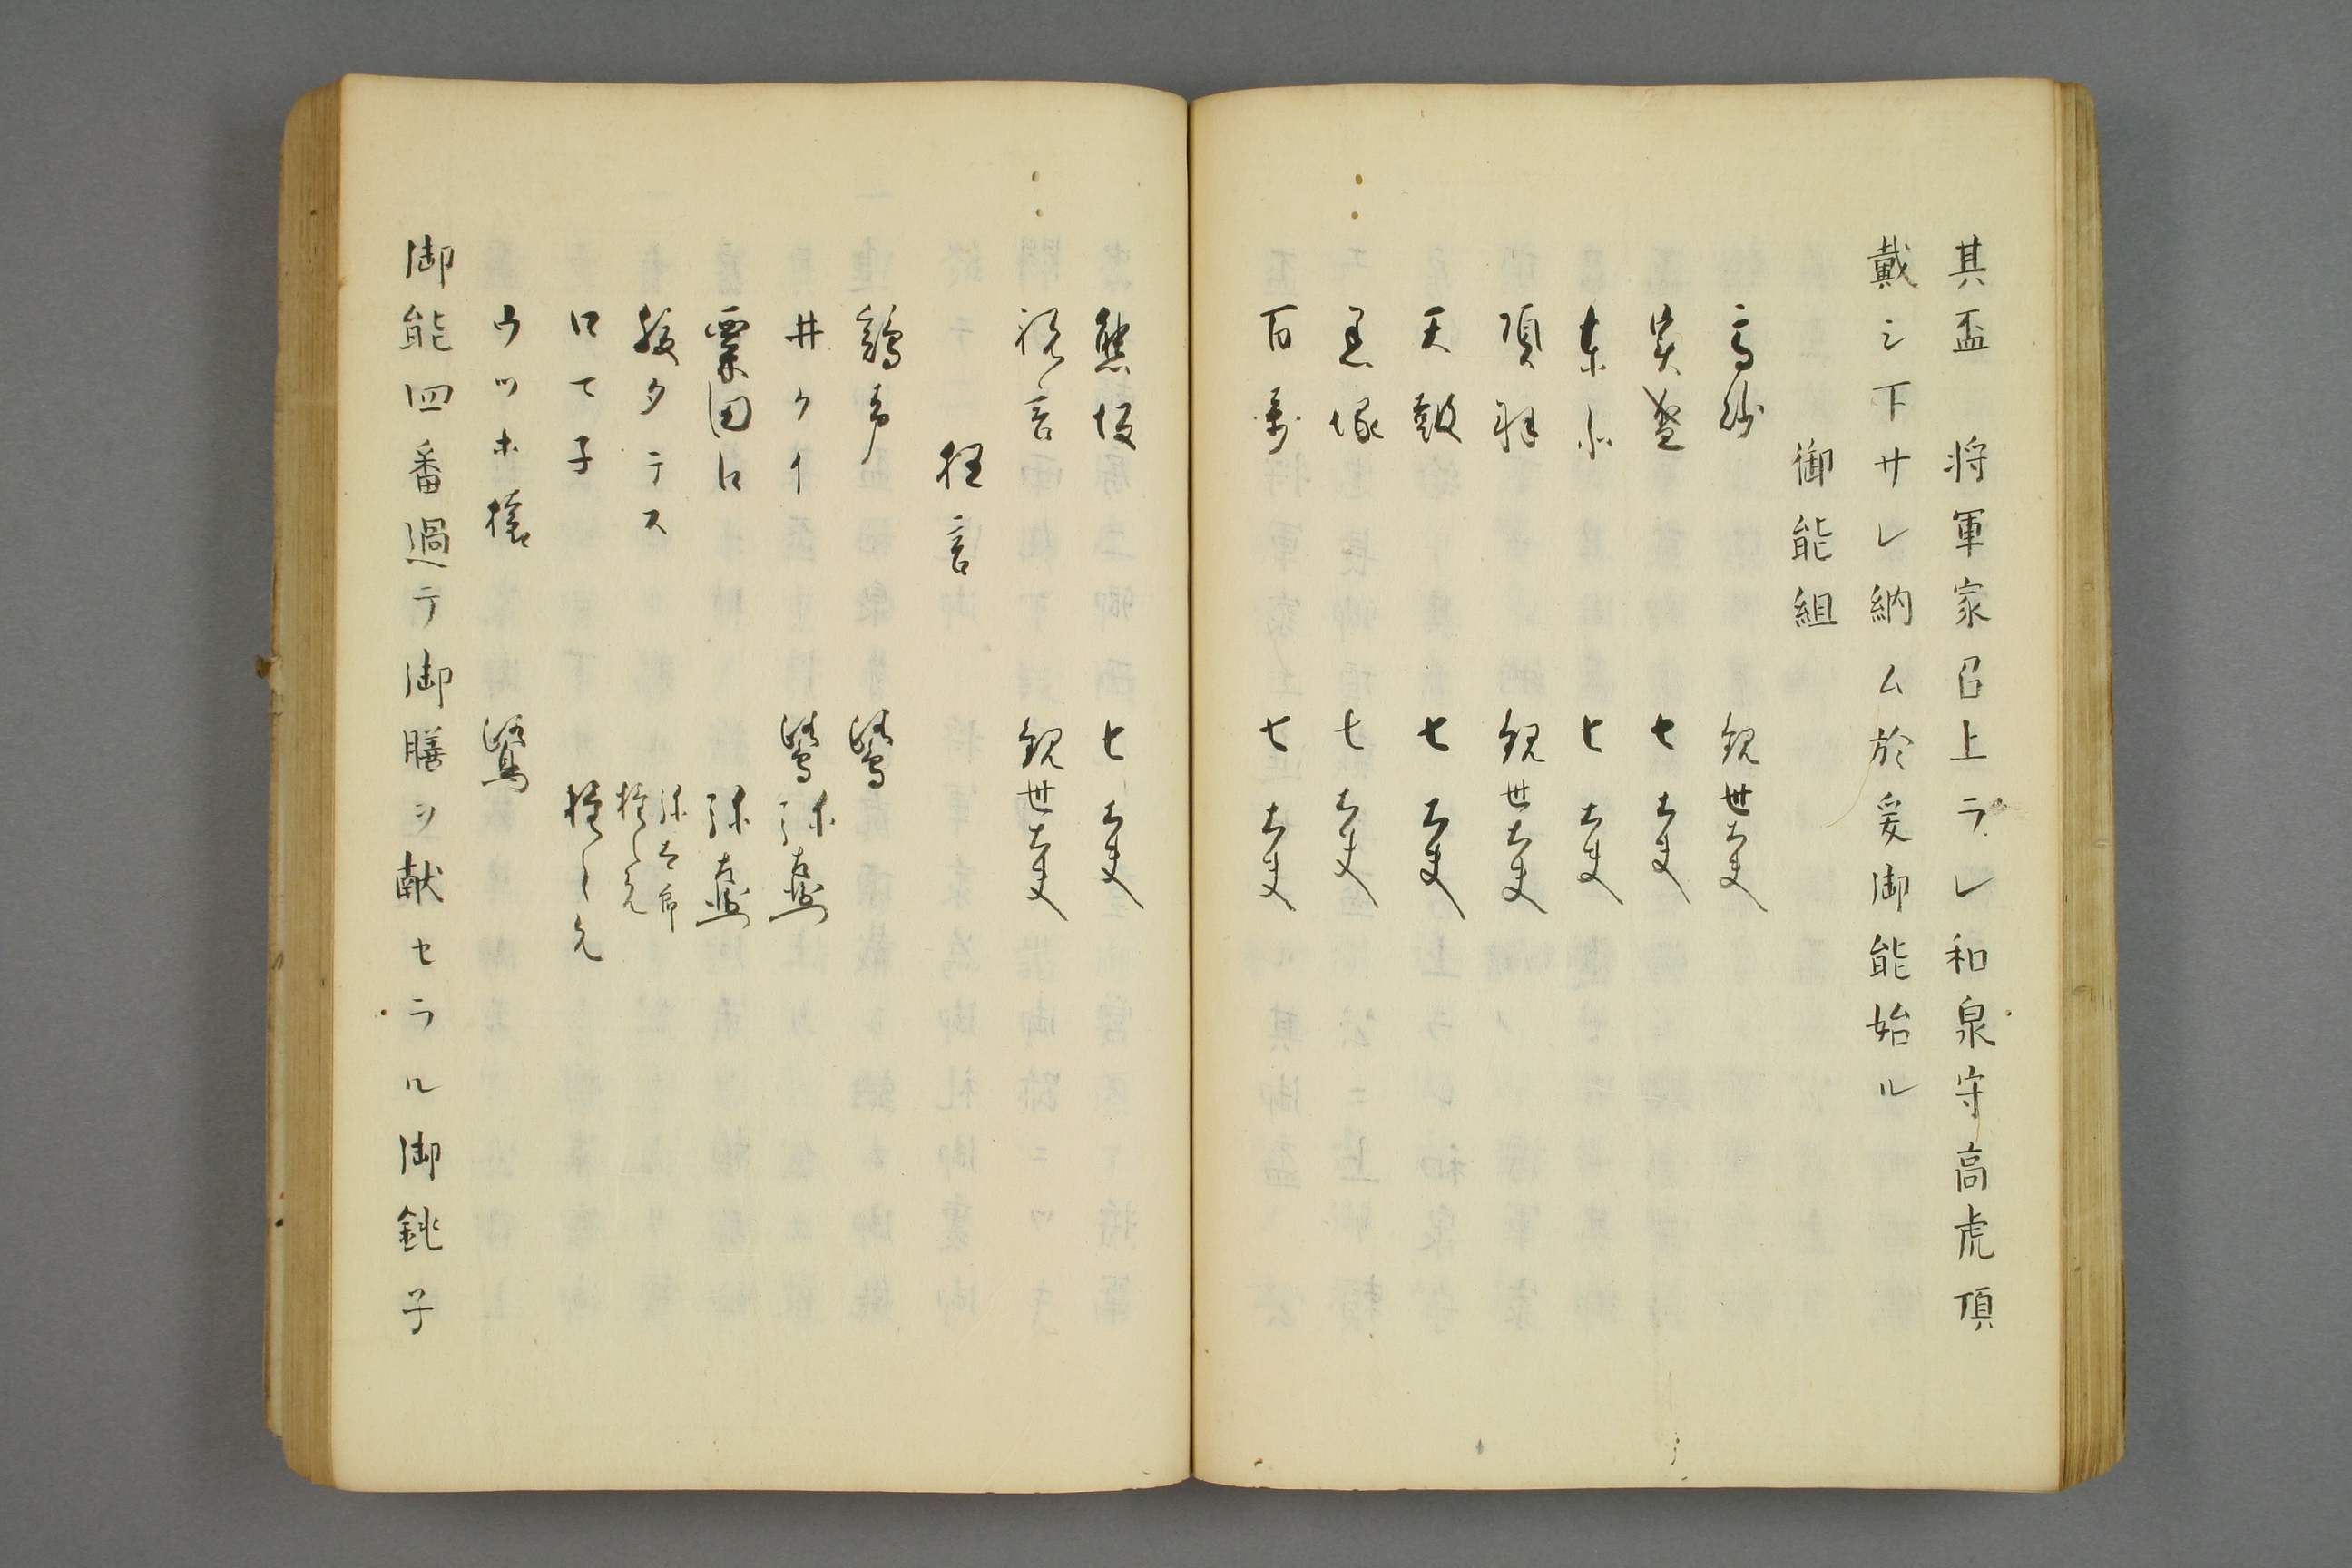 其盃　将軍家召上ラレ和泉守高虎頂
戴シ下サレ納ム於爰御能始ル
御能組
高砂　観世大夫
実盛　七大夫
東北　七大夫
項羽　観世大夫
天鼓　七大夫
黒塚　七大夫
百萬　七大夫
熊坂　七大夫
祝言　観世大夫
狂言
鶏聟　鷺
井クイ　鷺　弥太郎
粟田口　弥太郎
腹タテス　弥太郎
ウツホ猿　鷺
御能四番過テ御膳ヲ献セラル御銚子